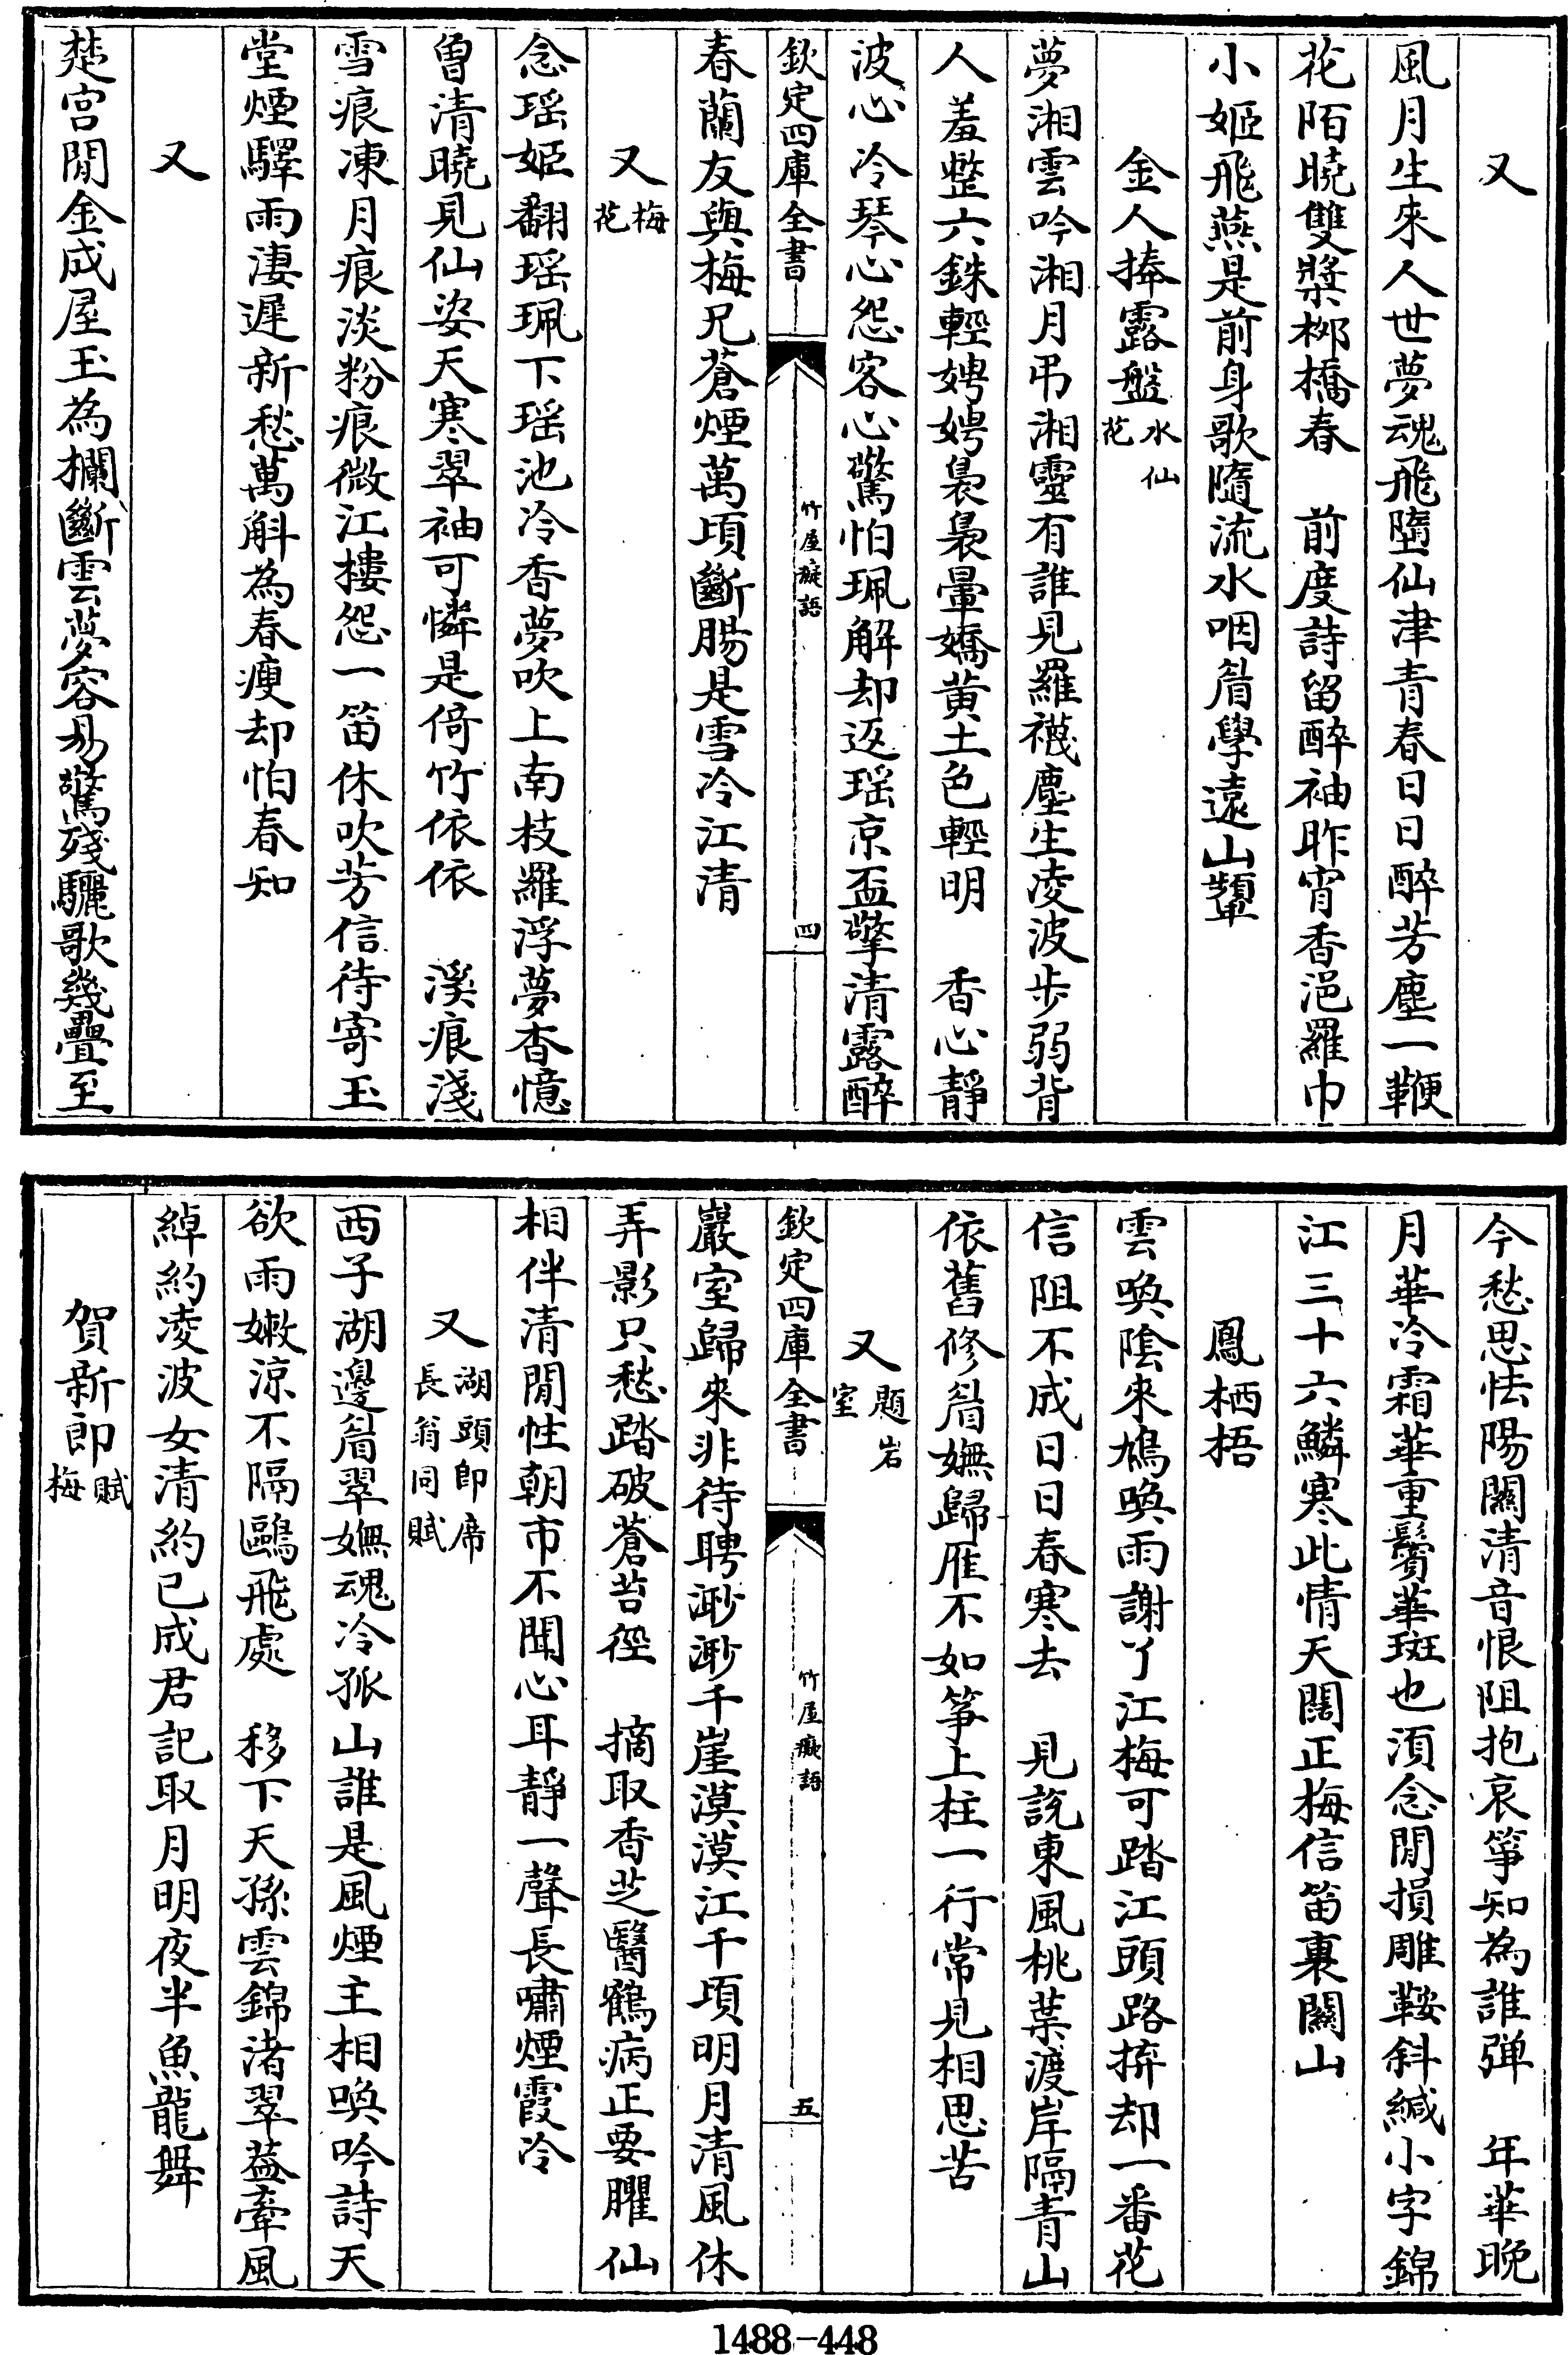 又
風月生來人世夢魂飛墮仙津青春日日醉芳塵一鞭
花陌曉雙槳栁橋春　前度詩留醉袖昨宵香浥羅巾
小姬飛燕是前身歌隨流水咽眉學遠山顰
金人捧露盤水仙花
夢湘雲吟湘月弔湘靈有誰見羅襪塵生凌波步弱背
人羞整六銖輕娉娉裊裊暈嬌黄土色輕明　香心靜
波心冷琴心怨客心驚怕珮解却返瑶京盃擎清露醉
欽定四庫全書
竹屋癡語
四
春蘭友與梅兄蒼煙萬頃斷腸是雪冷江清
又梅花
念瑶姬翻瑶珮下瑶池冷香夢吹上南枝羅浮夢杳憶
曾清曉見仙姿天寒翠袖可憐是倚竹依依　溪痕淺
雪痕凍月痕淡粉痕微江樓怨一笛休吹芳信待寄玉
堂煙驛雨淒遲新愁萬斛為春瘦却怕春知
又
楚宫閒金成屋玉為欄斷雲夢容易驚殘驪歌幾疊至
今愁思怯陽關清音恨阻抱哀箏知為誰弹　年華晚
月華冷霜華重鬢華斑也湏念閒損雕鞍斜緘小字錦
江三十六鱗寒此情天闊正梅信笛裏關山
鳳栖梧
雲喚陰來鳩喚雨謝了江梅可踏江頭路拚却一番花
信阻不成日日春寒去　見說東風桃葉渡岸隔青山
依舊修眉嫵歸雁不如箏上柱一行常見相思苦
又題岩室
欽定四庫全書
竹屋癡語
五
巖室歸來非待聘渺渺千崖漠漠江千頃明月清風休
弄影只愁踏破蒼苔徑　摘取香芝醫鶴病正要臞仙
相伴清閒性朝市不聞心耳靜一聲長嘯煙霞冷
又湖頭即席長翁同賦
西子湖邊眉翠嫵魂冷孤山誰是風煙主相喚吟詩天
欲雨嫩涼不隔鷗飛處　移下天孫雲錦渚翠葢牽風
綽約凌波女清約已成君記取月明夜半魚龍舞
賀新郎賦梅
1488-448